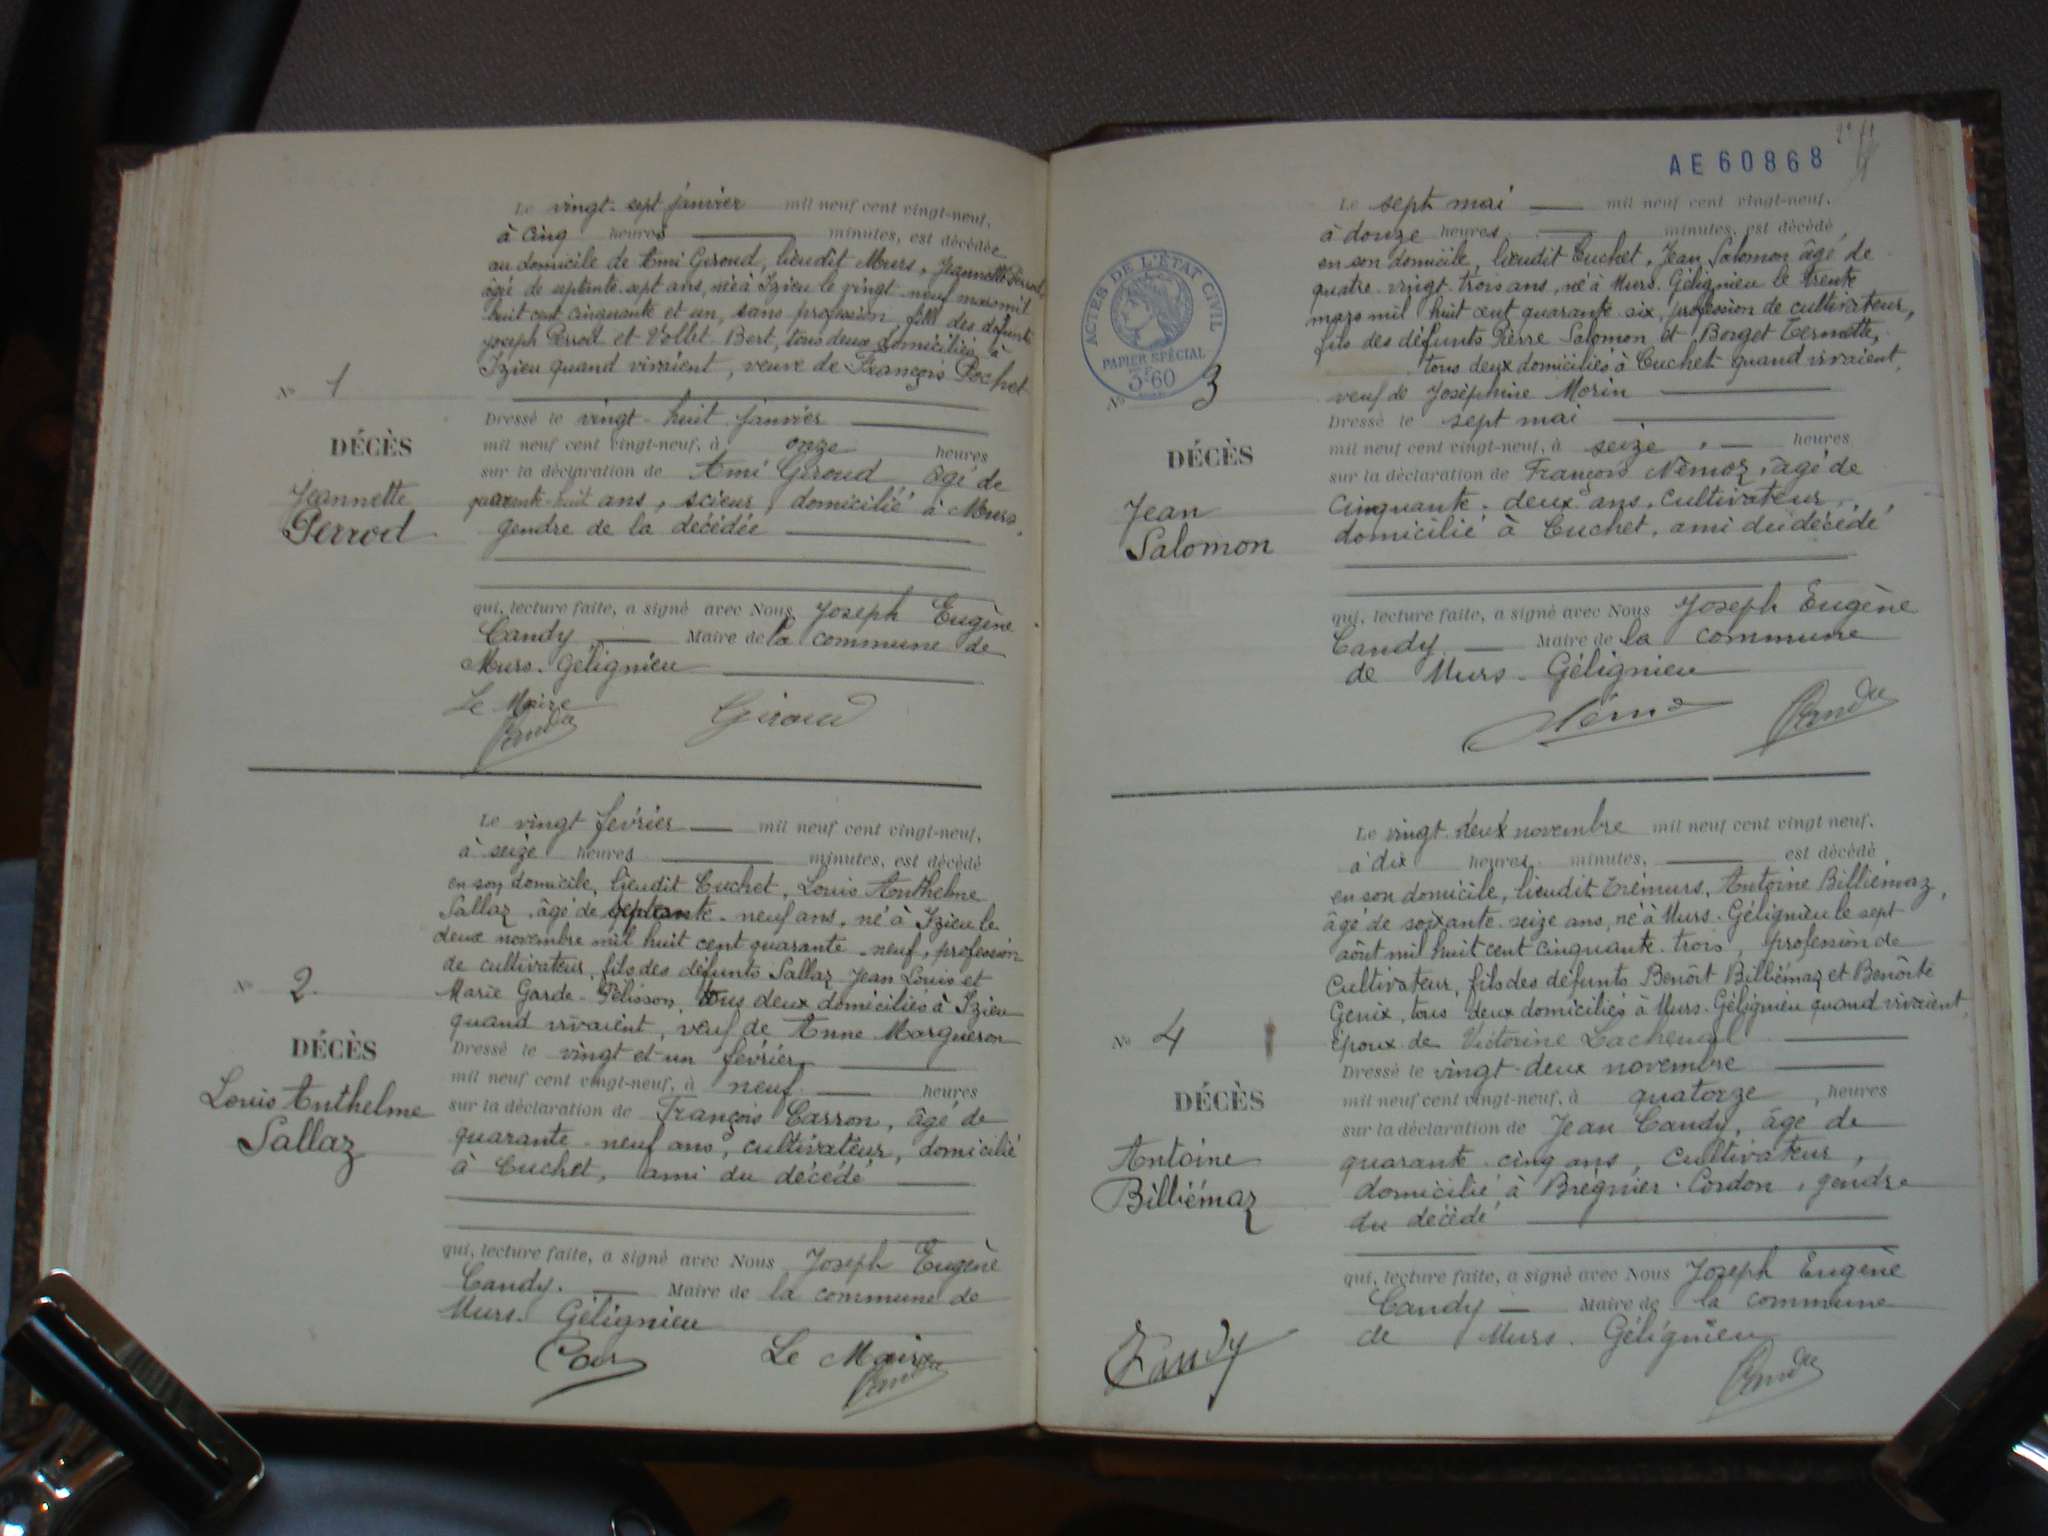 Le vingt-sept janvier mil neuf cent vingt-neuf,
à cinq heures minutes, est décédée
au domicile de Ami Giroud, lieudit Murs, Jeannette Perrod,
âgé de septante-sept ans, née à Izieu le vingt-neuf mars mil
huit cent cinquante et un, sans profession, fille des défunts
Joseph Perrod et Vollet Bert, tous deux domiciliés à
Izieu quand vivaient, veuve de François Pochet
N° 1
Dressé le vingt-huit janvier
mil neuf cent vingt-neuf, à onze heures
DÉCÈS
sur la déclaration de Ami Giroud âgé de
Jeannette
Perrod
quarante-huit ans, scieur, domicilié à Murs,
gendre de la décédée
qui, lecture faite, a signé avec Nous Joseph Eugène
Candy Maire de la commune de
Murs-Gélignieu
Le Maire
Giroud
Le vingt février mil neuf cent vingt-neuf,
à seize heures minutes, est décédé
en son domicile, lieudit Cuchet, Louis Anthelme
Sallaz, âgé de septante-neuf ans, né à Izieu le
deux novembre mil huit cent quarante-neuf, profession
de cultivateur, fils des défunts Sallaz Jean Louis et
N° 2
Marie Garde-Pélisson, tous deux domiciliés à Izieu
quand vivaient, veuf de Anne Margueron
DÉCÈS
Dressé le vingt et un février
mil neuf cent vingt-neuf, à neuf heures
Louis Anthelme
Sallaz
sur la déclaration de François Carron, âgé de
quarante-neuf ans, cultivateur, domicilié
à Cuchet, ami du décédé
qui, lecture faite, a signé avec Nous Joseph Eugène
Candy. Maire de la commune de
Murs-Gélignieu
Le Maire
AE 60868
Le sept mai mil neuf cent vingt-neuf,
à douze heures minutes, est décédé,
en son domicile, lieudit Cuchet, Jean Salomon âgé de
quatre-vingt-trois ans, né à Murs-Gélignieu le trente
mars mil huit cent quarante-six, profession de cultivateur,
fils des défunts Pierre Salomon et Borget Termette,
tous deux domiciliés à Cuchet quand vivaient,
ACTES DE L'ÉTAT CIVIL
PAPIER SPÉCIAL
3F60
N° 3
veuf de Joséphine Morin
Dressé le sept mai
mil neuf cent vingt-neuf, à seize heures
DÉCÈS
sur la déclaration de François Némoz, âgé de
Jean
Salomon
cinquante-deux ans, cultivateur,
domicilié à Cuchet, ami du décédé
qui, lecture faite, a signé avec Nous Joseph Eugène
Candy Maire de la commune
de Murs-Gélignieu
Le vingt-deux novembre mil neuf cent vingt neuf,
à dix heures minutes, est décédé
en son domicile, lieudit Trémurs, Antoine Billiémaz,
âgé de soixante-seize ans, né à Murs-Gélignieu le sept
août mil huit cent cinquante-trois, profession de
cultivateur, fils des défunts Benoît Billiémaz et Benoîte
Genix, tous deux domiciliés à Murs-Gélignieu quand vivaient,
N° 4
époux de Victorine
Dressé le vingt-deux novembre
DÉCÈS
mil neuf cent vingt-neuf, à quatorze heures
sur la déclaration de Jean Candy, âgé de
Antoine
Billiémaz
quarante-cinq ans, cultivateur,
domicilié à Brégnier-Cordon, gendre
du décédé
qui, lecture faite, a signé avec Nous Joseph Eugène
Candy Maire de la commune
de Murs-Gélignieu
Candy